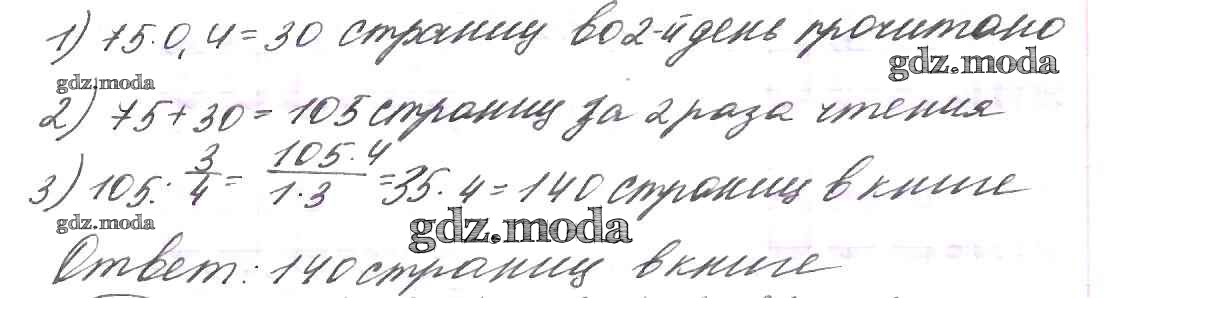 1) 75·0,4=30 страниц во 2-й день прочитано
gdz.moda
gdz.moda
2) 75+30=105 страниц за 2 раза чтения
3) 105: 3/4 = 105·4/1·3 =35·4=140 страниц в книге
gdz.moda
gdz.moda
Ответ: 140 страниц в книге